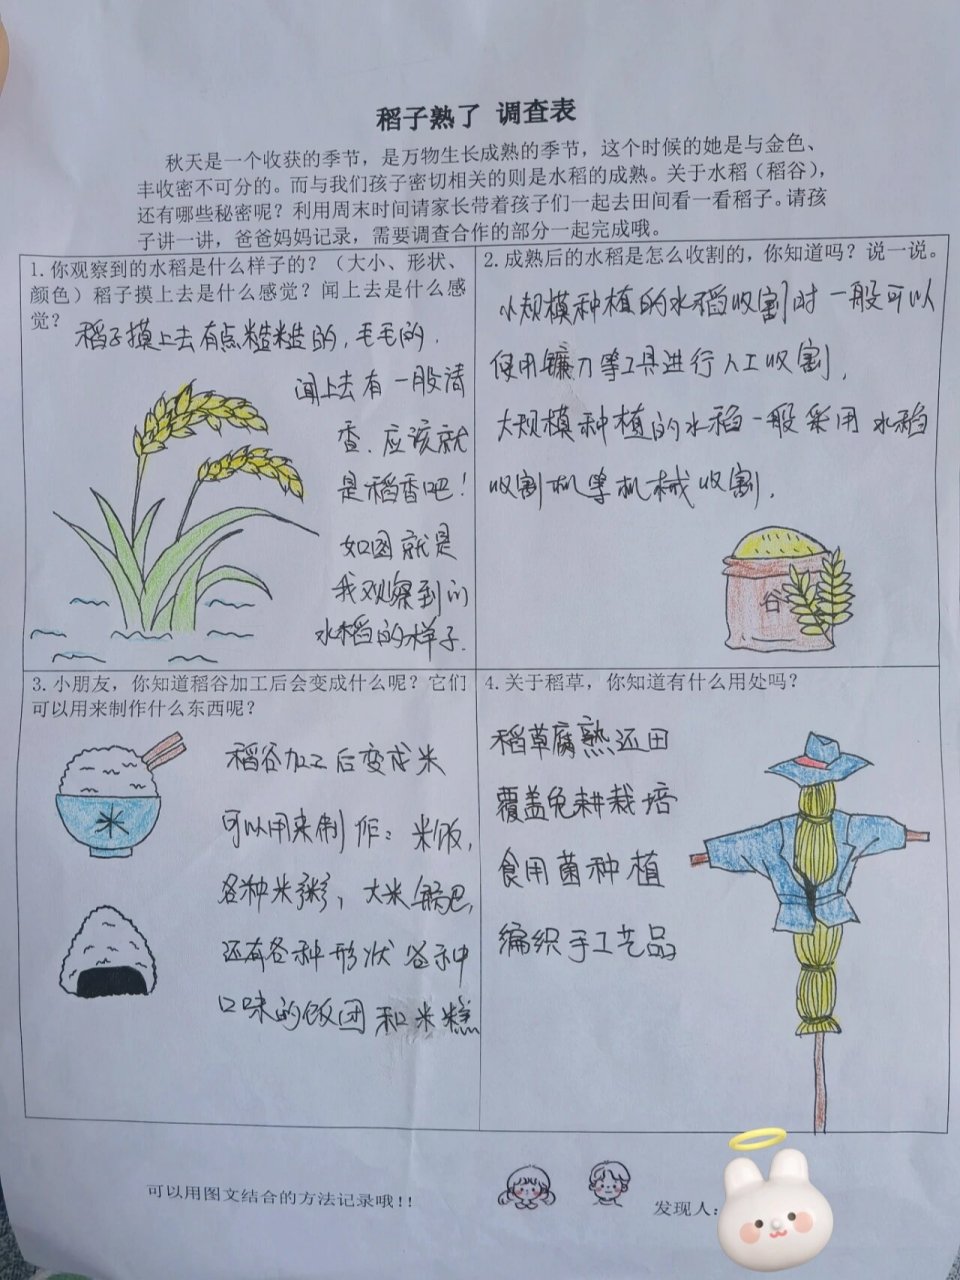 稻子熟了 调查表
秋天是一个收获的季节，是万物生长成熟的季节，这个时候的她是与金色、
丰收密不可分的。而与我们孩子密切相关的则是水稻的成熟。关于水稻（稻谷），
还有哪些秘密呢？利用周末时间请家长带着孩子们一起去田间看一看稻子。请孩
子讲一讲，爸爸妈妈记录，需要调查合作的部分一起完成哦。
1.你观察到的水稻是什么样子的？（大小、形状、
颜色）稻子摸上去是什么感觉？闻上去是什么感
觉？
稻子摸上去有点糙糙的，毛毛的.
闻上去有一股清
香.应该就
是稻香吧！
如图就是
我观察到的
水稻的样子.
2.成熟后的水稻是怎么收割的，你知道吗？说一说。
小规模种植的水稻收割时一般可以
使用镰刀等工具进行人工收割，
大规模种植的水稻一般采用水稻
收割机等机械收割.
谷
3.小朋友，你知道稻谷加工后会变成什么呢？它们
可以用来制作什么东西呢？
稻谷加工后变成米
可以用来制作：米饭，
各种米粥，大米锅巴，
还有各种形状各种
口味的饭团和米糕
米
4.关于稻草，你知道有什么用处吗？
稻草腐熟还田
覆盖免耕栽培
食用菌种植
编织手工艺品
可以用图文结合的方法记录哦！！
发现人：